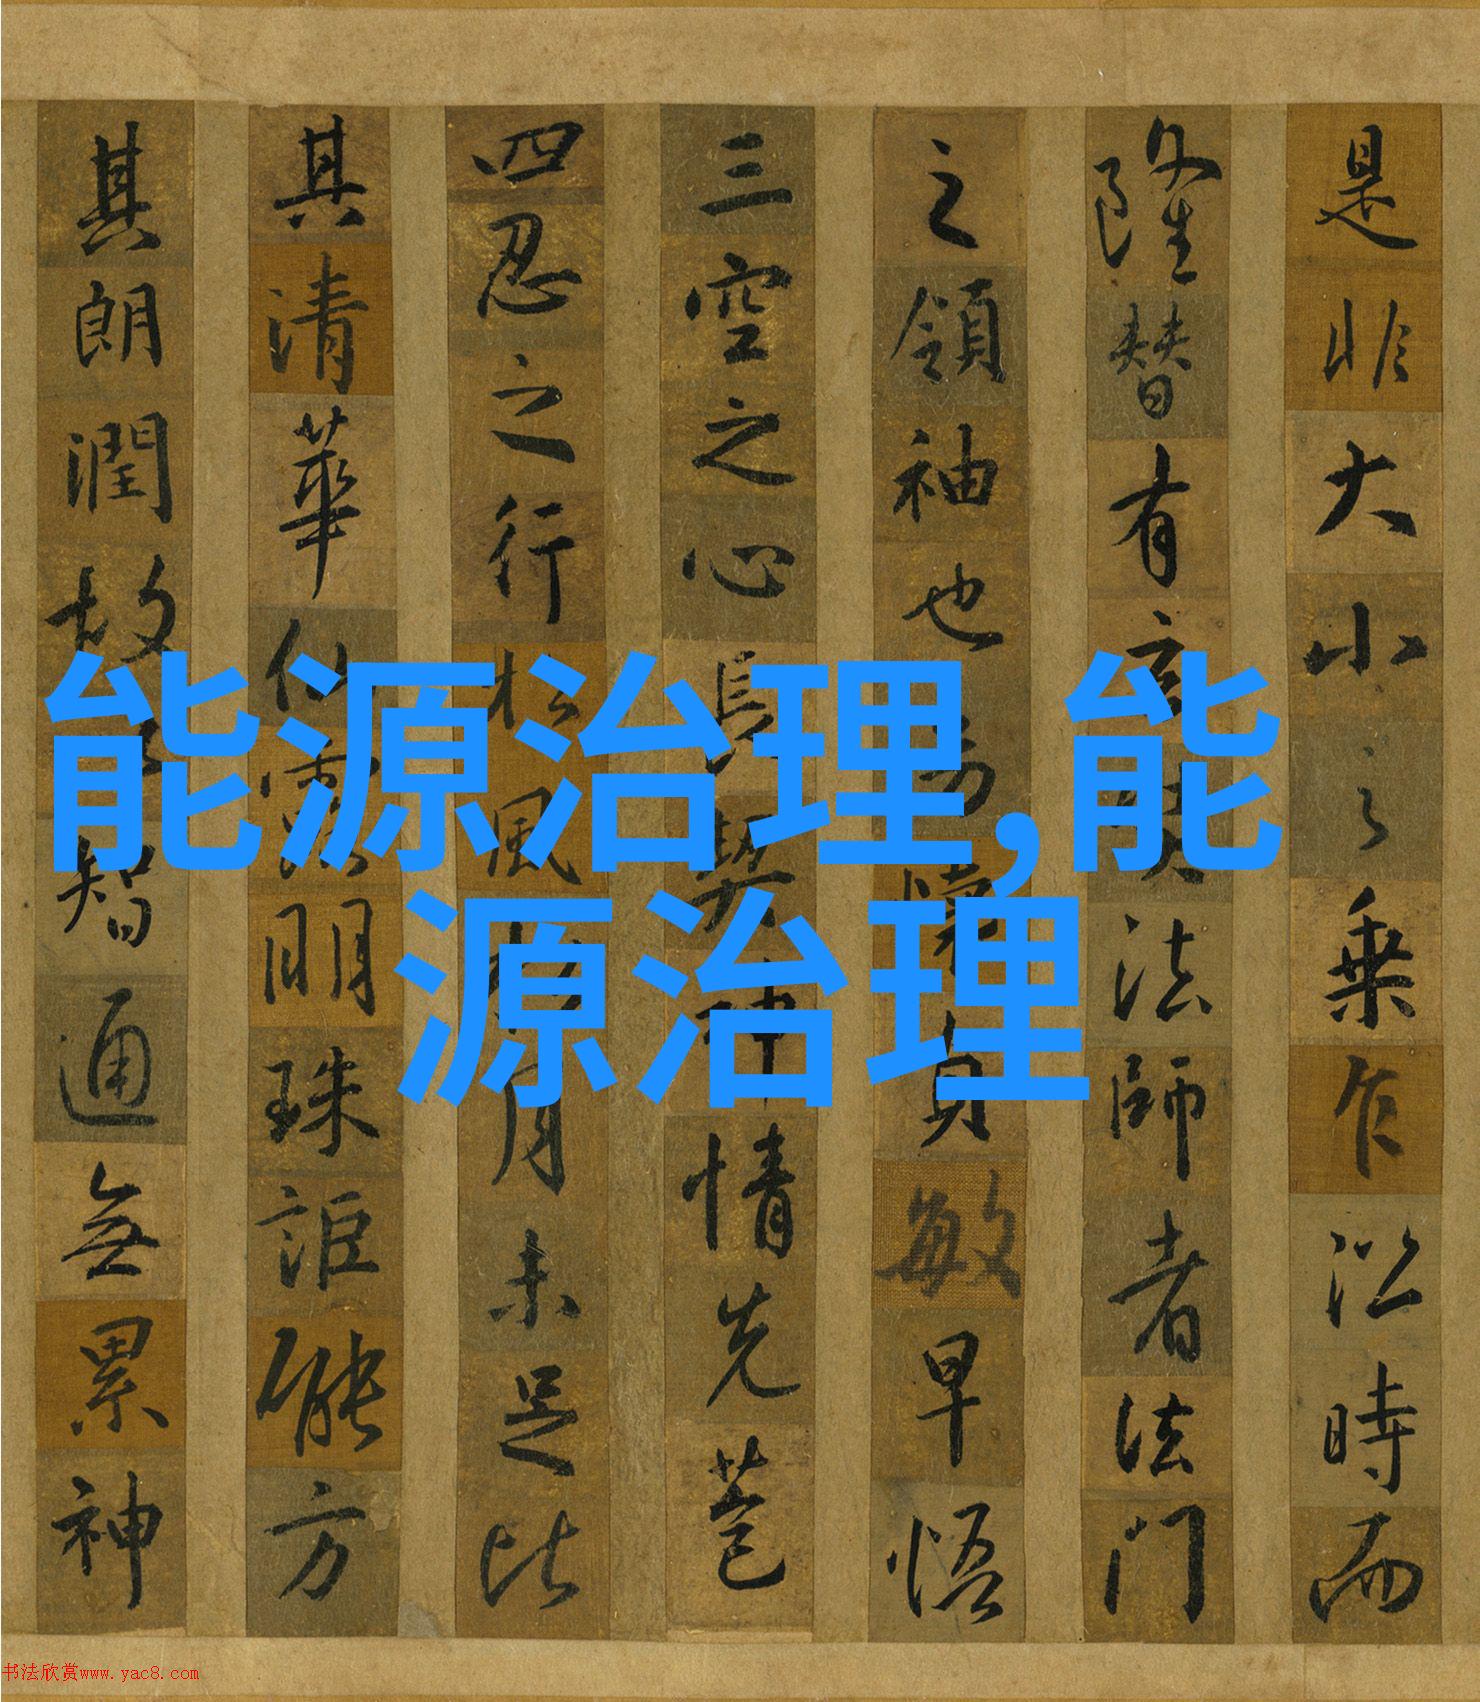 是非大小之乘乍㳂時而
隆替有玄奘法師者法門
之領袖也㓜懷貞敏早悟
三空之心長契神情先苞
四忍之行松風水月未足比
其清華仙露明珠詎能方
其朗潤故以智通無累神
能源治理,能
源治理
书法欣赏www.yac8.com